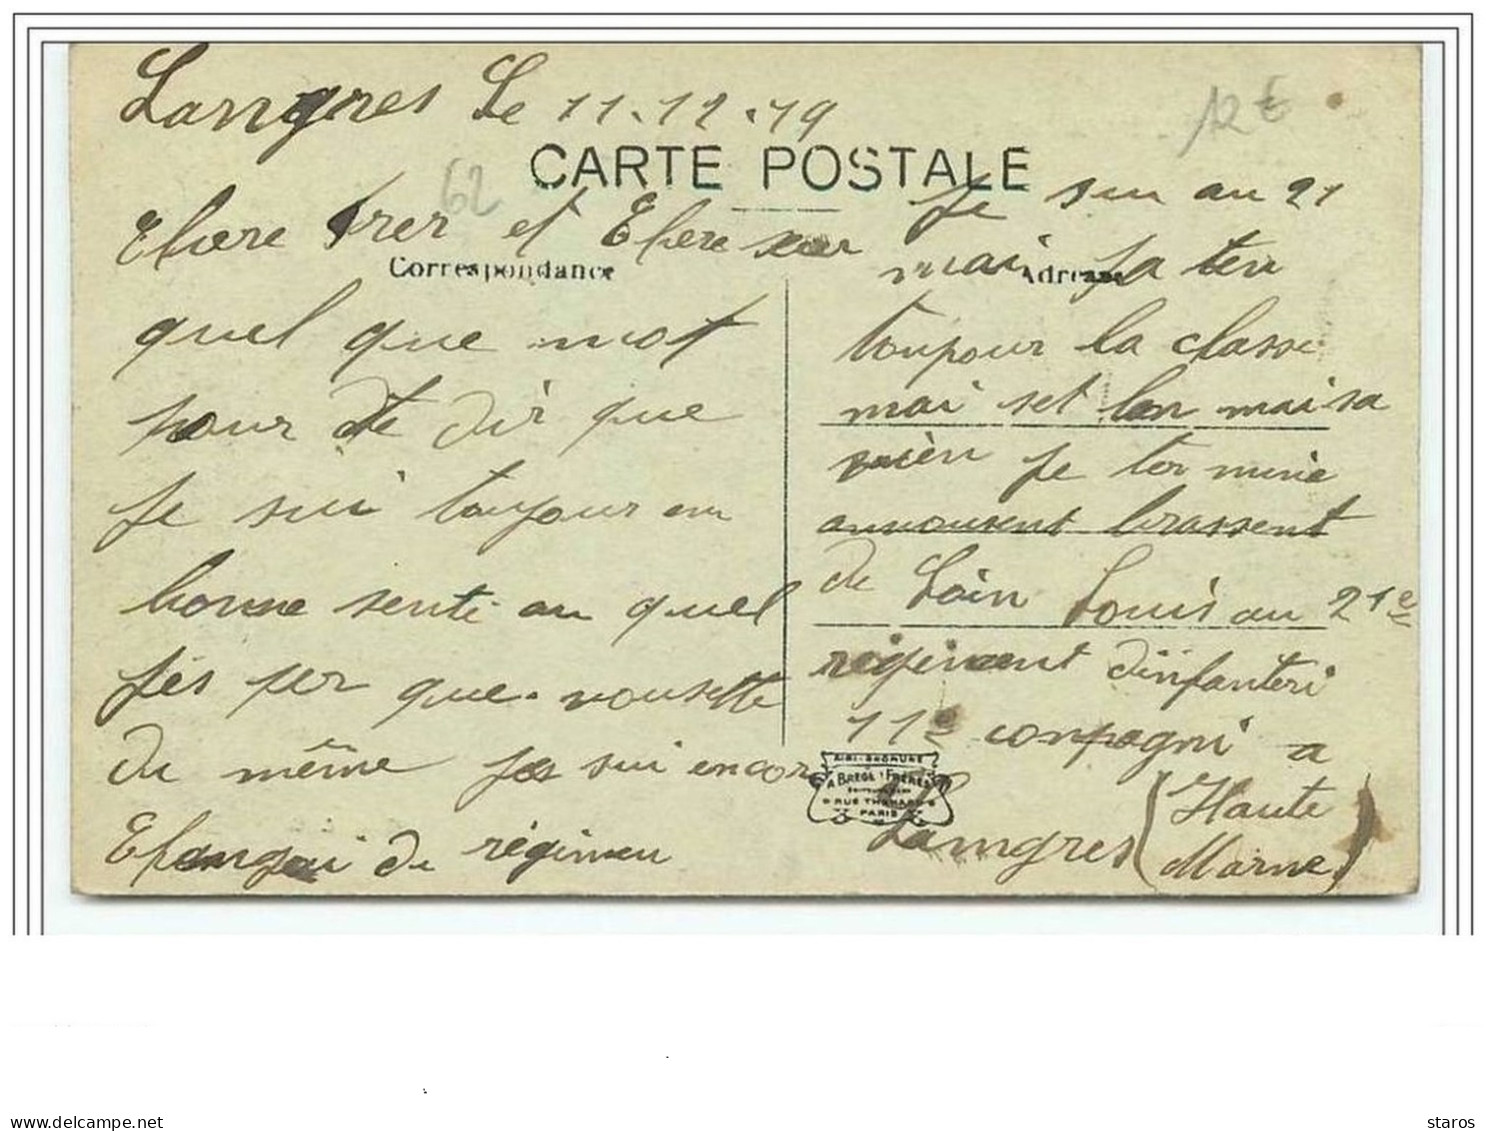 Langres Le 11.12.19
12€
CARTE POSTALE
62
Chere frer et Chere seur
Correspondance
quel que mot
pour te dir que
je sui toujour en
bonne senté en quel
jes per que vousette
du même jes sui encor
Changai de régimen
Je sui au 21
mai ja ten
Adresse
toujour la classe
mai set lon mai sa
vièn je ter mine
en vousent brassent
de Loin Louis au 21e
régiment dinfanteri
11e conpagni a
Langres (Haute
Marne)
A BREGE FRERES
9 RUE THENARD 9
PARIS
delcampe.net
staros